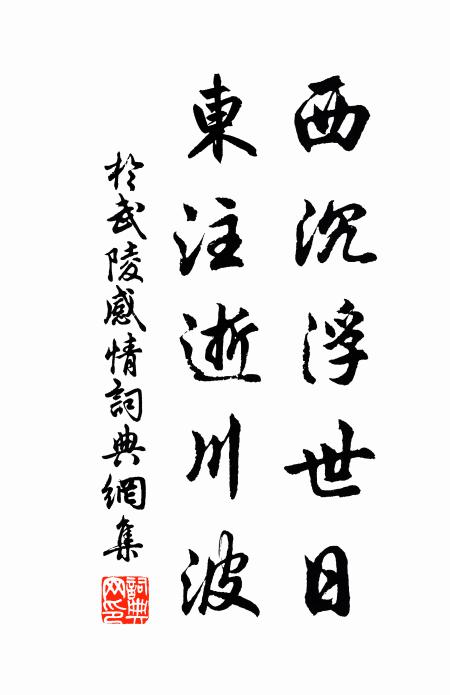 西沉浮世日
東注逝川波
於武陵感情詞典網集
詞典网印